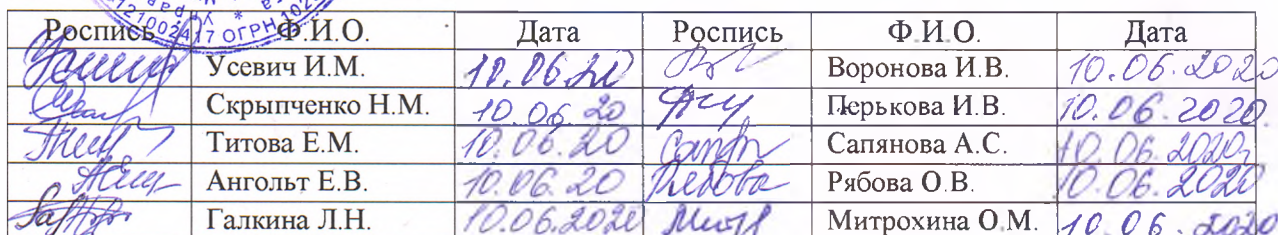 2121002417 ОГРН 102
Роспись Ф.И.О. Дата Роспись Ф.И.О. Дата
Усевич И.М. 10.06.20 Воронова И.В. 10.06.2020
Скрыпченко Н.М. 10.06.20 Перькова И.В. 10.06.2020
Титова Е.М. 10.06.20 Сапянова А.С. 10.06.2020г
Ангольт Е.В. 10.06.20 Рябова Рябова О.В. 10.06.2020
Галкина Л.Н. 10.06.2020 Митрохина О.М. 10.06.2020